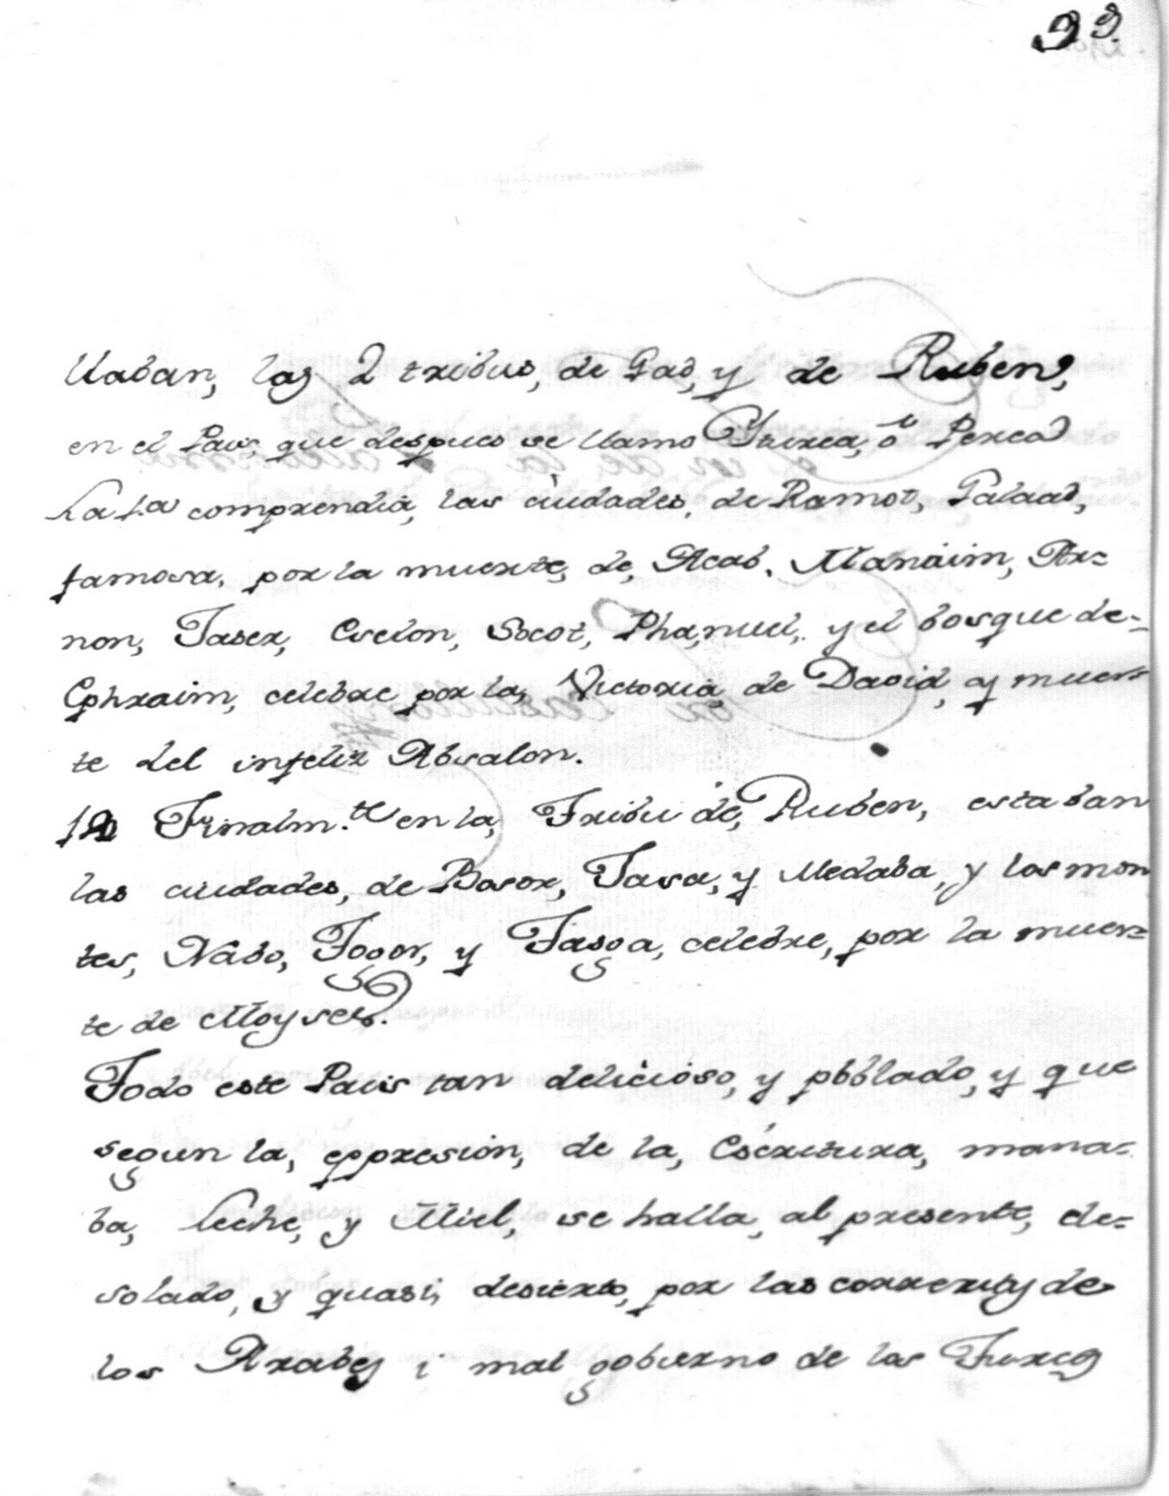 99.
llaban, las 2 tribus, de Gad, y de Ruben,
en el Pais, que despues se llamo Iturea, ó Perea
La 1.a comprendia, las ciudades, de Ramot, Galaad,
famosa, por la muerte, de, Acab. Manaim, Ar=
non, Jaser, Eselon, Socot, Phanuel, y el bosque de=
Ephraim, celebre por la, Victoria de David, y muer=
te del infeliz Absalon.
Finalm.te en la, Tribu de, Ruben, estaban
las ciudades, de Bosor, Jasa, y Medaba, y los mon
tes, Nabo, Fogor, y Fasga, celebre, por la muer=
te de Moyses.
Todo este Pais tan delicioso, y pobladó, y que
segun la, expresion, de la, Escritura, mana=
ba, leche, y Miel, se halla, al presente, de=
solado, y quasi, desierto, por las correrias de
los Arabes i mal gobierno de los Turcos